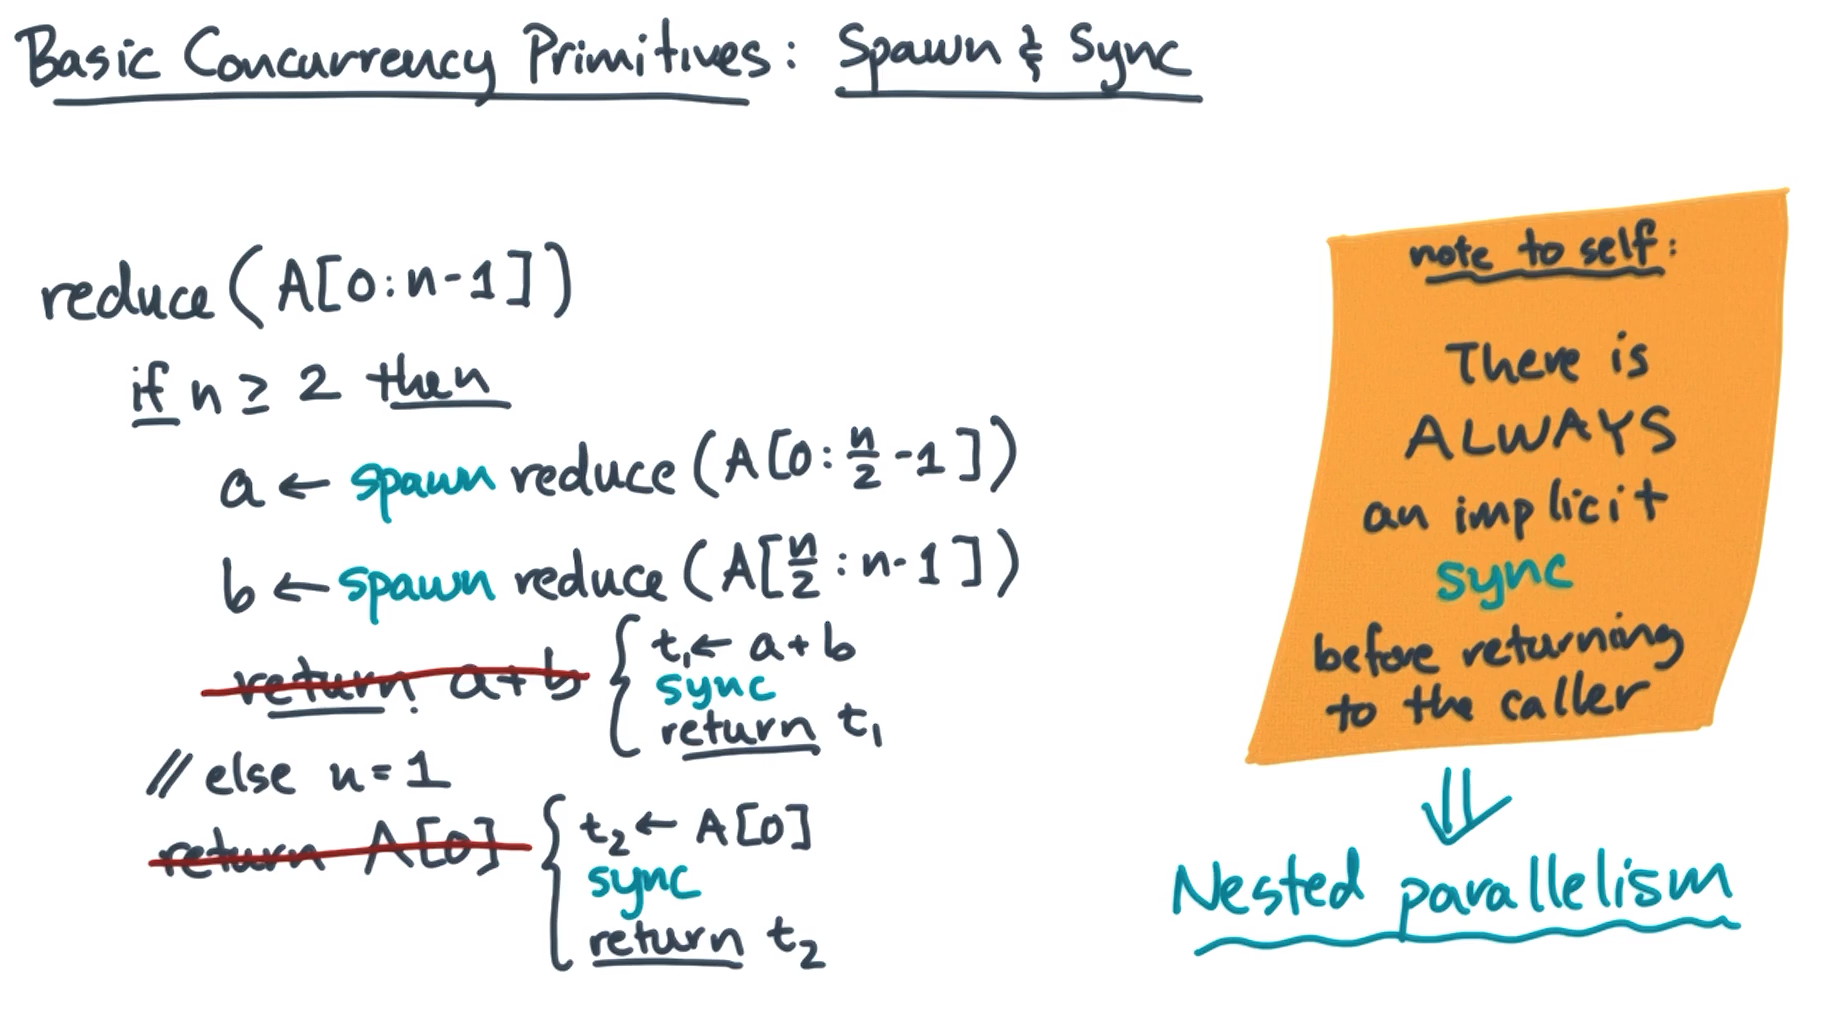 Basic Concurrency Primitives: Spawn & Sync
reduce (A[0:n-1])
if n ≥ 2 then
a ← spawn reduce (A[0:n/2-1])
b ← spawn reduce (A[n/2:n-1])
return a+b
t₁ ← a+b
sync
return t₁
// else n=1
return A[0]
t₂ ← A[0]
sync
return t₂
note to self:
There is
ALWAYS
an implicit
sync
before returning
to the caller
⇓
Nested parallelism